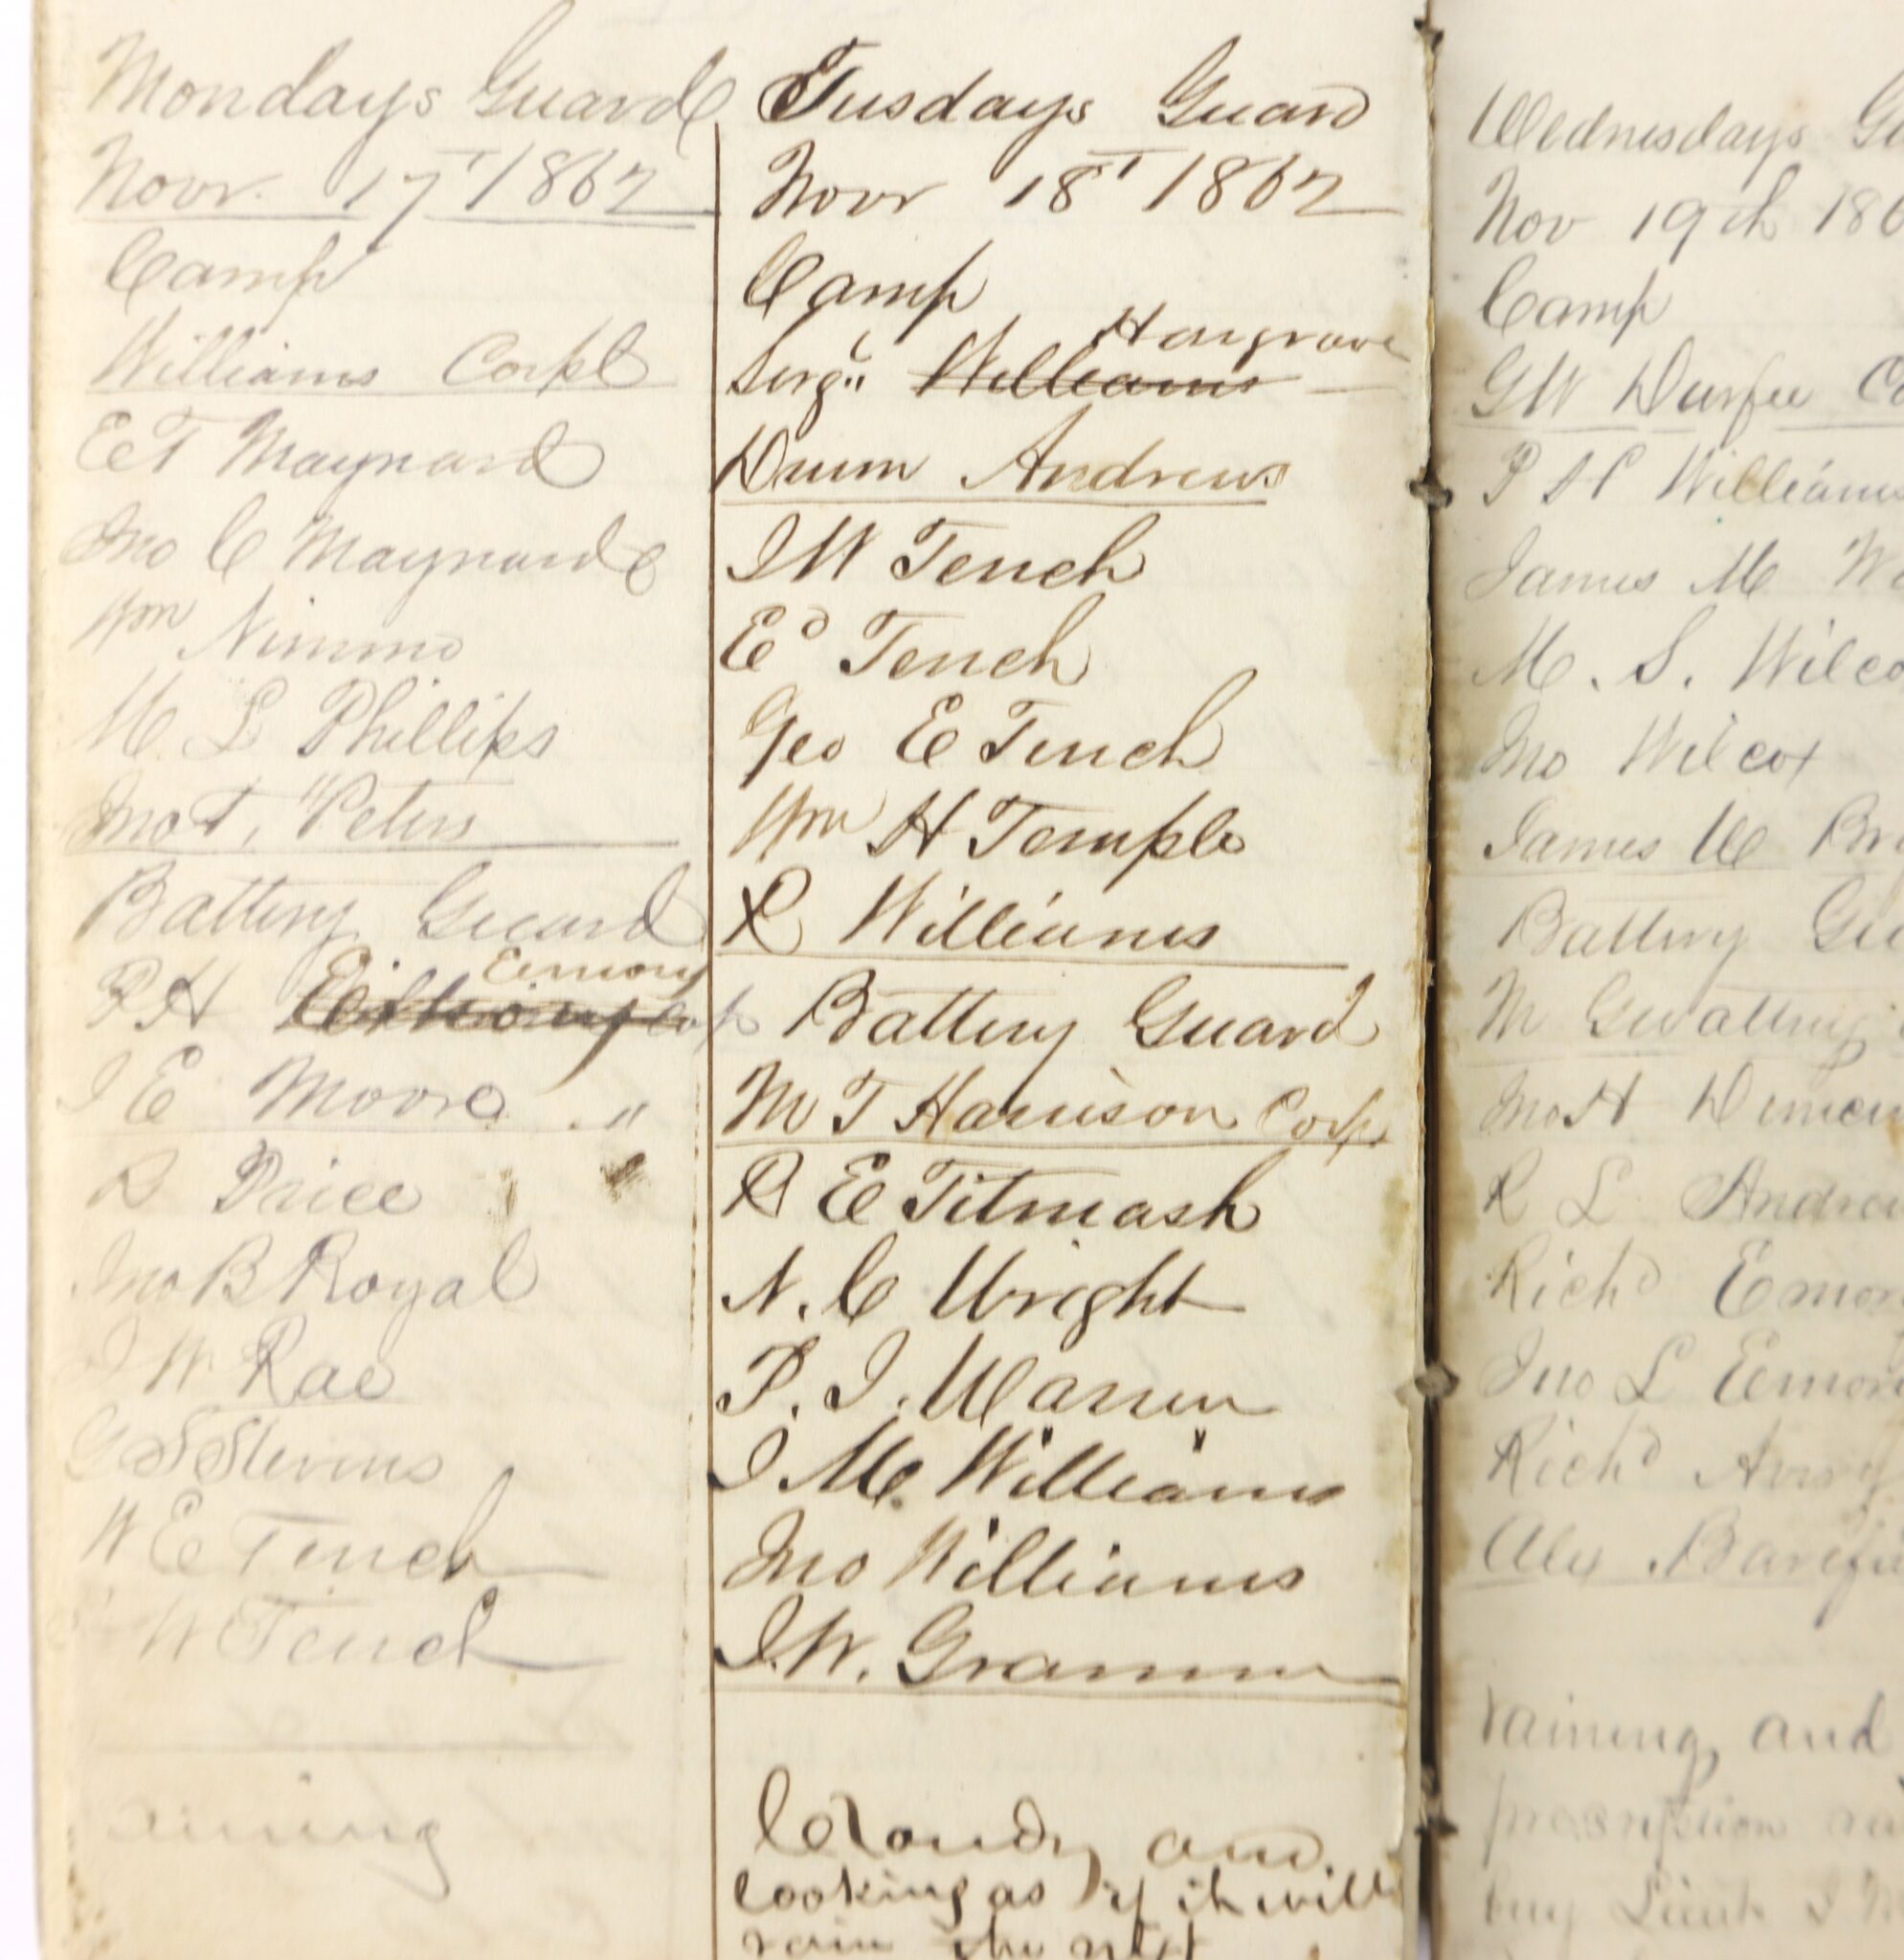 Mondays Guard
Novr. 17 1862
Camp
Williams Corpl
E T Maynard
Jno C Maynard
Wm Nimmo
M. L Phillips
Jno T, Peters
Battery Guard
Emory
P H Corp
J E Moore "
R Price
Jno B Royal
J W Rae
G S Stevens
W E Tench
W Tench
raining
Tusdays Guard
Novr 18 1862
Camp
Hargrave
Sergt Williams
Drum Andrews
J W Tench
Ed Tench
Geo E Tench
Wm H Temple
R Williams
Battery Guard
M T Harrison Corp
R E Titmash
N. C Wright
P. J. Warren
J. M. Williams
Jno Williams
J. W. Grammer
Cloudy and
looking as if it will
rain the
Wednesdays Gu
Nov 19th 186
Camp
G W Durfee Co
P H Williams
James M W
M. S. Wilco
Jno Wilcox
James W Br
Battery Gu
M Gwaltney
Jno H
R L Andrew
Richd Emor
Jno L Emor
Richd Avery
Alex Barefo
raining and
buy Lieut J